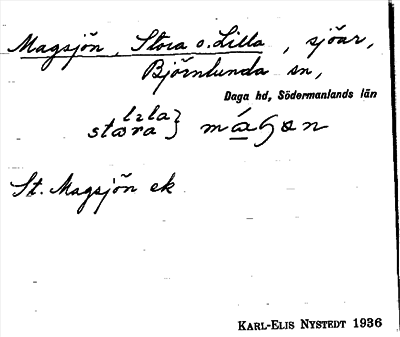 Magsjön, Stora o. Lilla, sjöar,
Björnlunda sn,
Daga hd, Södermanlands län
St. Magsjön ek
KARL-ELIS NYSTEDT 1936